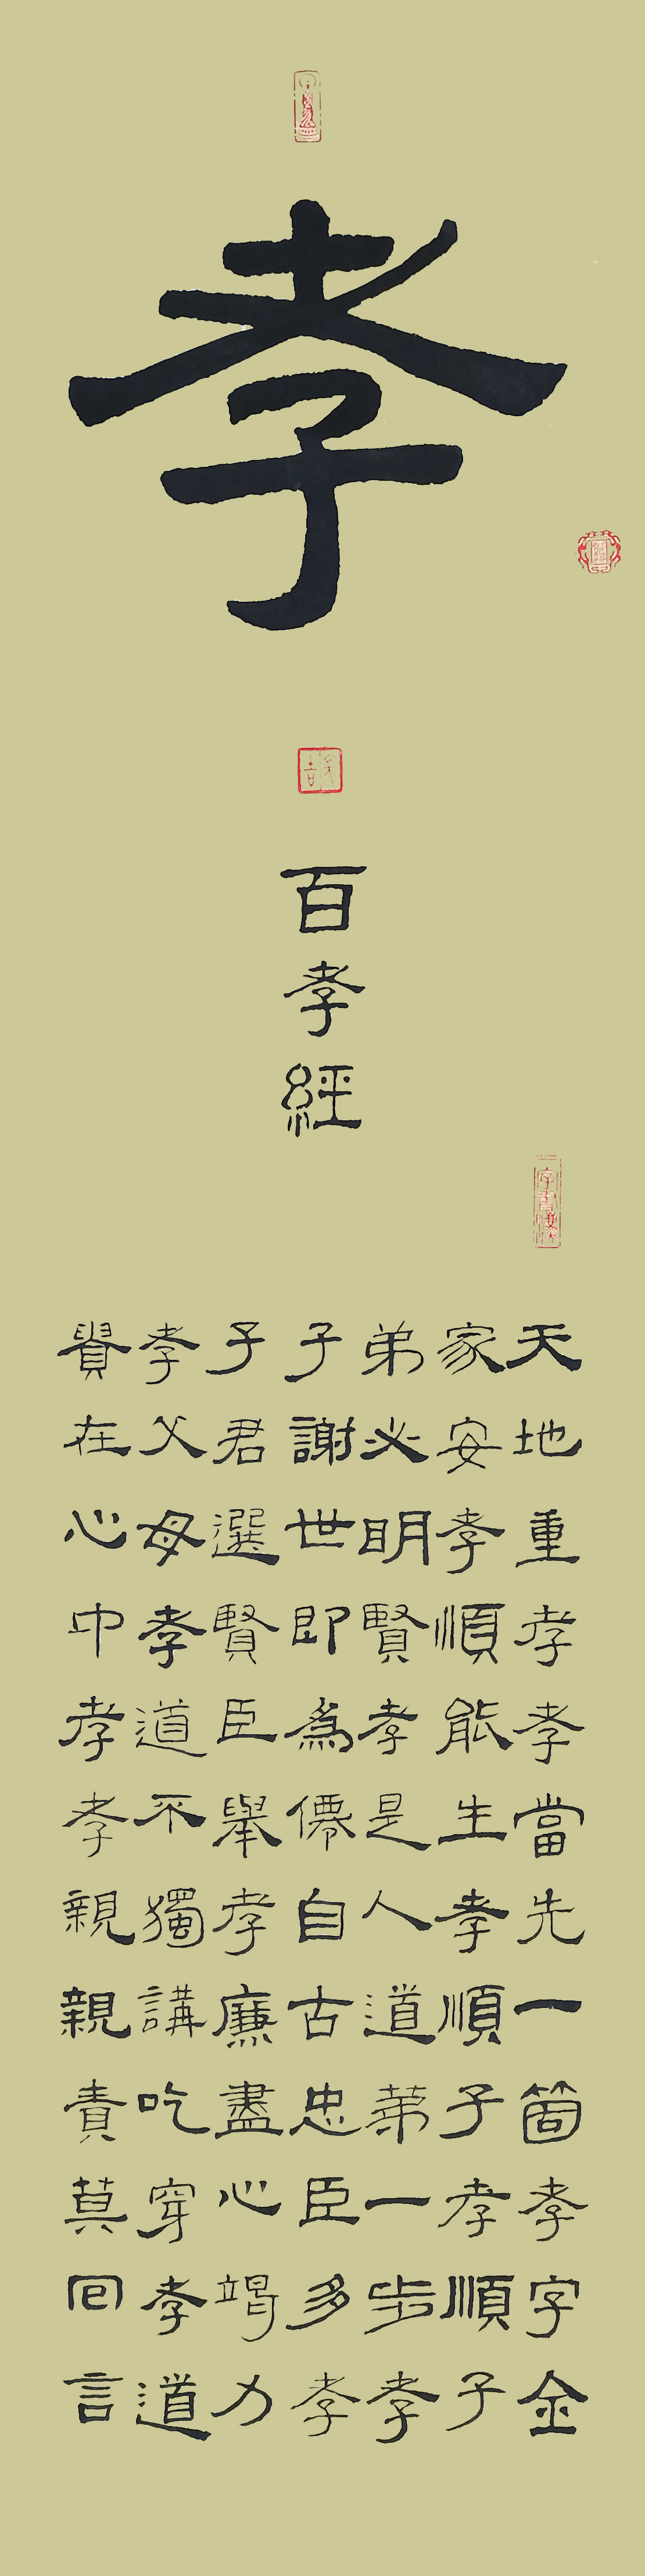 孝
百孝經
天地重孝孝當先一箇孝字全
家安孝順能生孝順子孝順子
弟必明賢孝是人道第一步孝
子謝世即為僊自古忠臣多孝
子君選賢臣舉孝廉盡心竭力
孝父母孝道不獨講吃穿孝道
貴在心中孝孝親親責莫回言